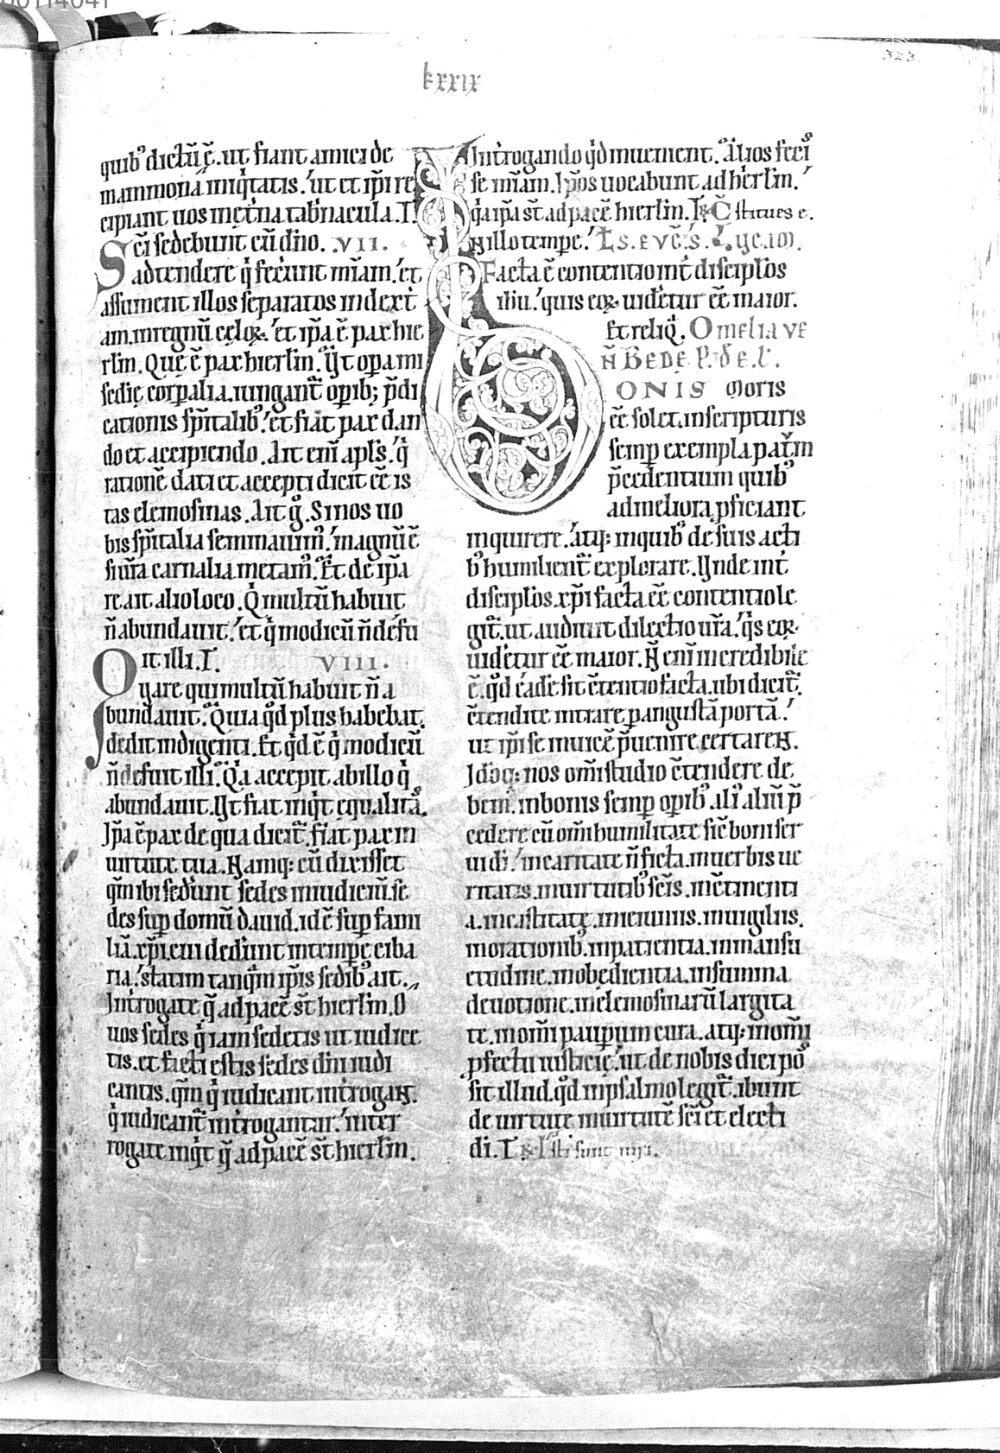 lxxxix
323
quib' dictū ē. ut fiant amici de
mammona iniq̄tatis. ut et ip̄i re
cipiant uos in et̄na tab̄nacula. T.
Sc̄i sedebunt cū dn̄o. VII.
adtendere q̄ fec̄unt mīam. et
assument illos separatos in dext̄
am in regnū celoꝝ. et ip̄a ē pax hie
rlm̄. Quę ē pax hierlm̄. Ut opa mi
sedię corp̄alia iungant̄ opib; p̄di
cationis sp̄italib'. et fiat pax dan
do et accipiendo. Ait eni apl̄s. q̄
rationē dati et accepti dicit eē is
tas elemosinas. Ait ḡ. Si nos uo
bis sp̄italia seminauim'. magnū ē
si ur̄a carnalia metam'. Et de ip̄a
re ait alio loco. Q̄ multū habuit
n̄ abundauit. et q̄ modicū n̄ defu
it illi. T. VIII.
Quare qui multū habuit n̄ a
bundauit. Quia qd̄ plus habebat.
dedit indigenti. Et qd̄ ē q̄ modicū
n̄ defuit illi. Q̄a accepit ab illo q̄
abundauit. Ut fiat inq̄t equalitā.
Ip̄a ē pax de qua dicit̄. fiat pax in
uirtute tua. Namq: cū dixisset
qm̄ ibi sed̄unt sedes in iudiciū. se
des sup domū dauid. id ē sup fami
liā xp̄i cui ded̄unt in tempe ciba
ria. statim tanq̄m ip̄is sedib' ait.
Int̄rogate q̄ ad pacē st̄ hierlm̄. O
uos sedes q̄ iam sedetis ut iudice
tis. et facti estis sedes dn̄i iudi
cantis. qm̄ q̄ iudicant int̄rogaꝶ.
q̄ iudicant̄ int̄rogantur. inter
rogate inq̄t q̄ ad pacē st̄ hierlm̄.
Int̄rogando qd̄ inuenient. Alios feci
se mīam. Ip̄os uocabunt ad hierlm̄.
q̄a ip̄a st̄ ad pacē hierlm̄. Constitues e.
In illo tempe. S. Lucam.
Facta ē contentio int̄ discipl̄os
ihu. quis eoꝝ uid̄etur eē maior.
Et reliq̄. Omelia ve
n̄ Bede. p. de e. l.
ONIS Moris
eē solet in scripturis
semp exempla patrm
p̄cedentium quib'
ad meliora pficiant
inquirere. atq: in quib' de suis acti
b' humilient̄ explorare. Unde int̄
discipl̄os xp̄i facta eē contentio le
git̄. ut audiuit dilectio ur̄a. q̄s eoꝝ
uid̄etur eē maior. N̄ eni incredibile
ē. qd̄ eadē sit c̄tentio facta. ubi dicit̄.
c̄tendite intrare p angustā portā.
ut ip̄i se inuicē p̄uenire certareꝶ.
Idoq: nos om̄i studio c̄tendere de
bem'. in bonis semp opib'. ali' aliū p̄
cedere. cū om̄i humilitate sic̄ boni ser
ui di. in caritate n̄ ficta. in uerbis ue
ritatis. in uirtutib' sc̄is. in c̄tinenti
a. in castitate. in ieiuniis. in uigiliis.
in orationib'. in patientia. in mansu
etudine. in obedientia. in summa
deuotione. in elemosinarū largita
te. in om̄i paupum cura. atq: in om̄i
pfectu iusticię. ut de nobis dici pos
sit illud. qd̄ in psalmo legit̄. ibunt
de uirtute in uirtutē sc̄i et electi
di. T. Isti sunt uiri.